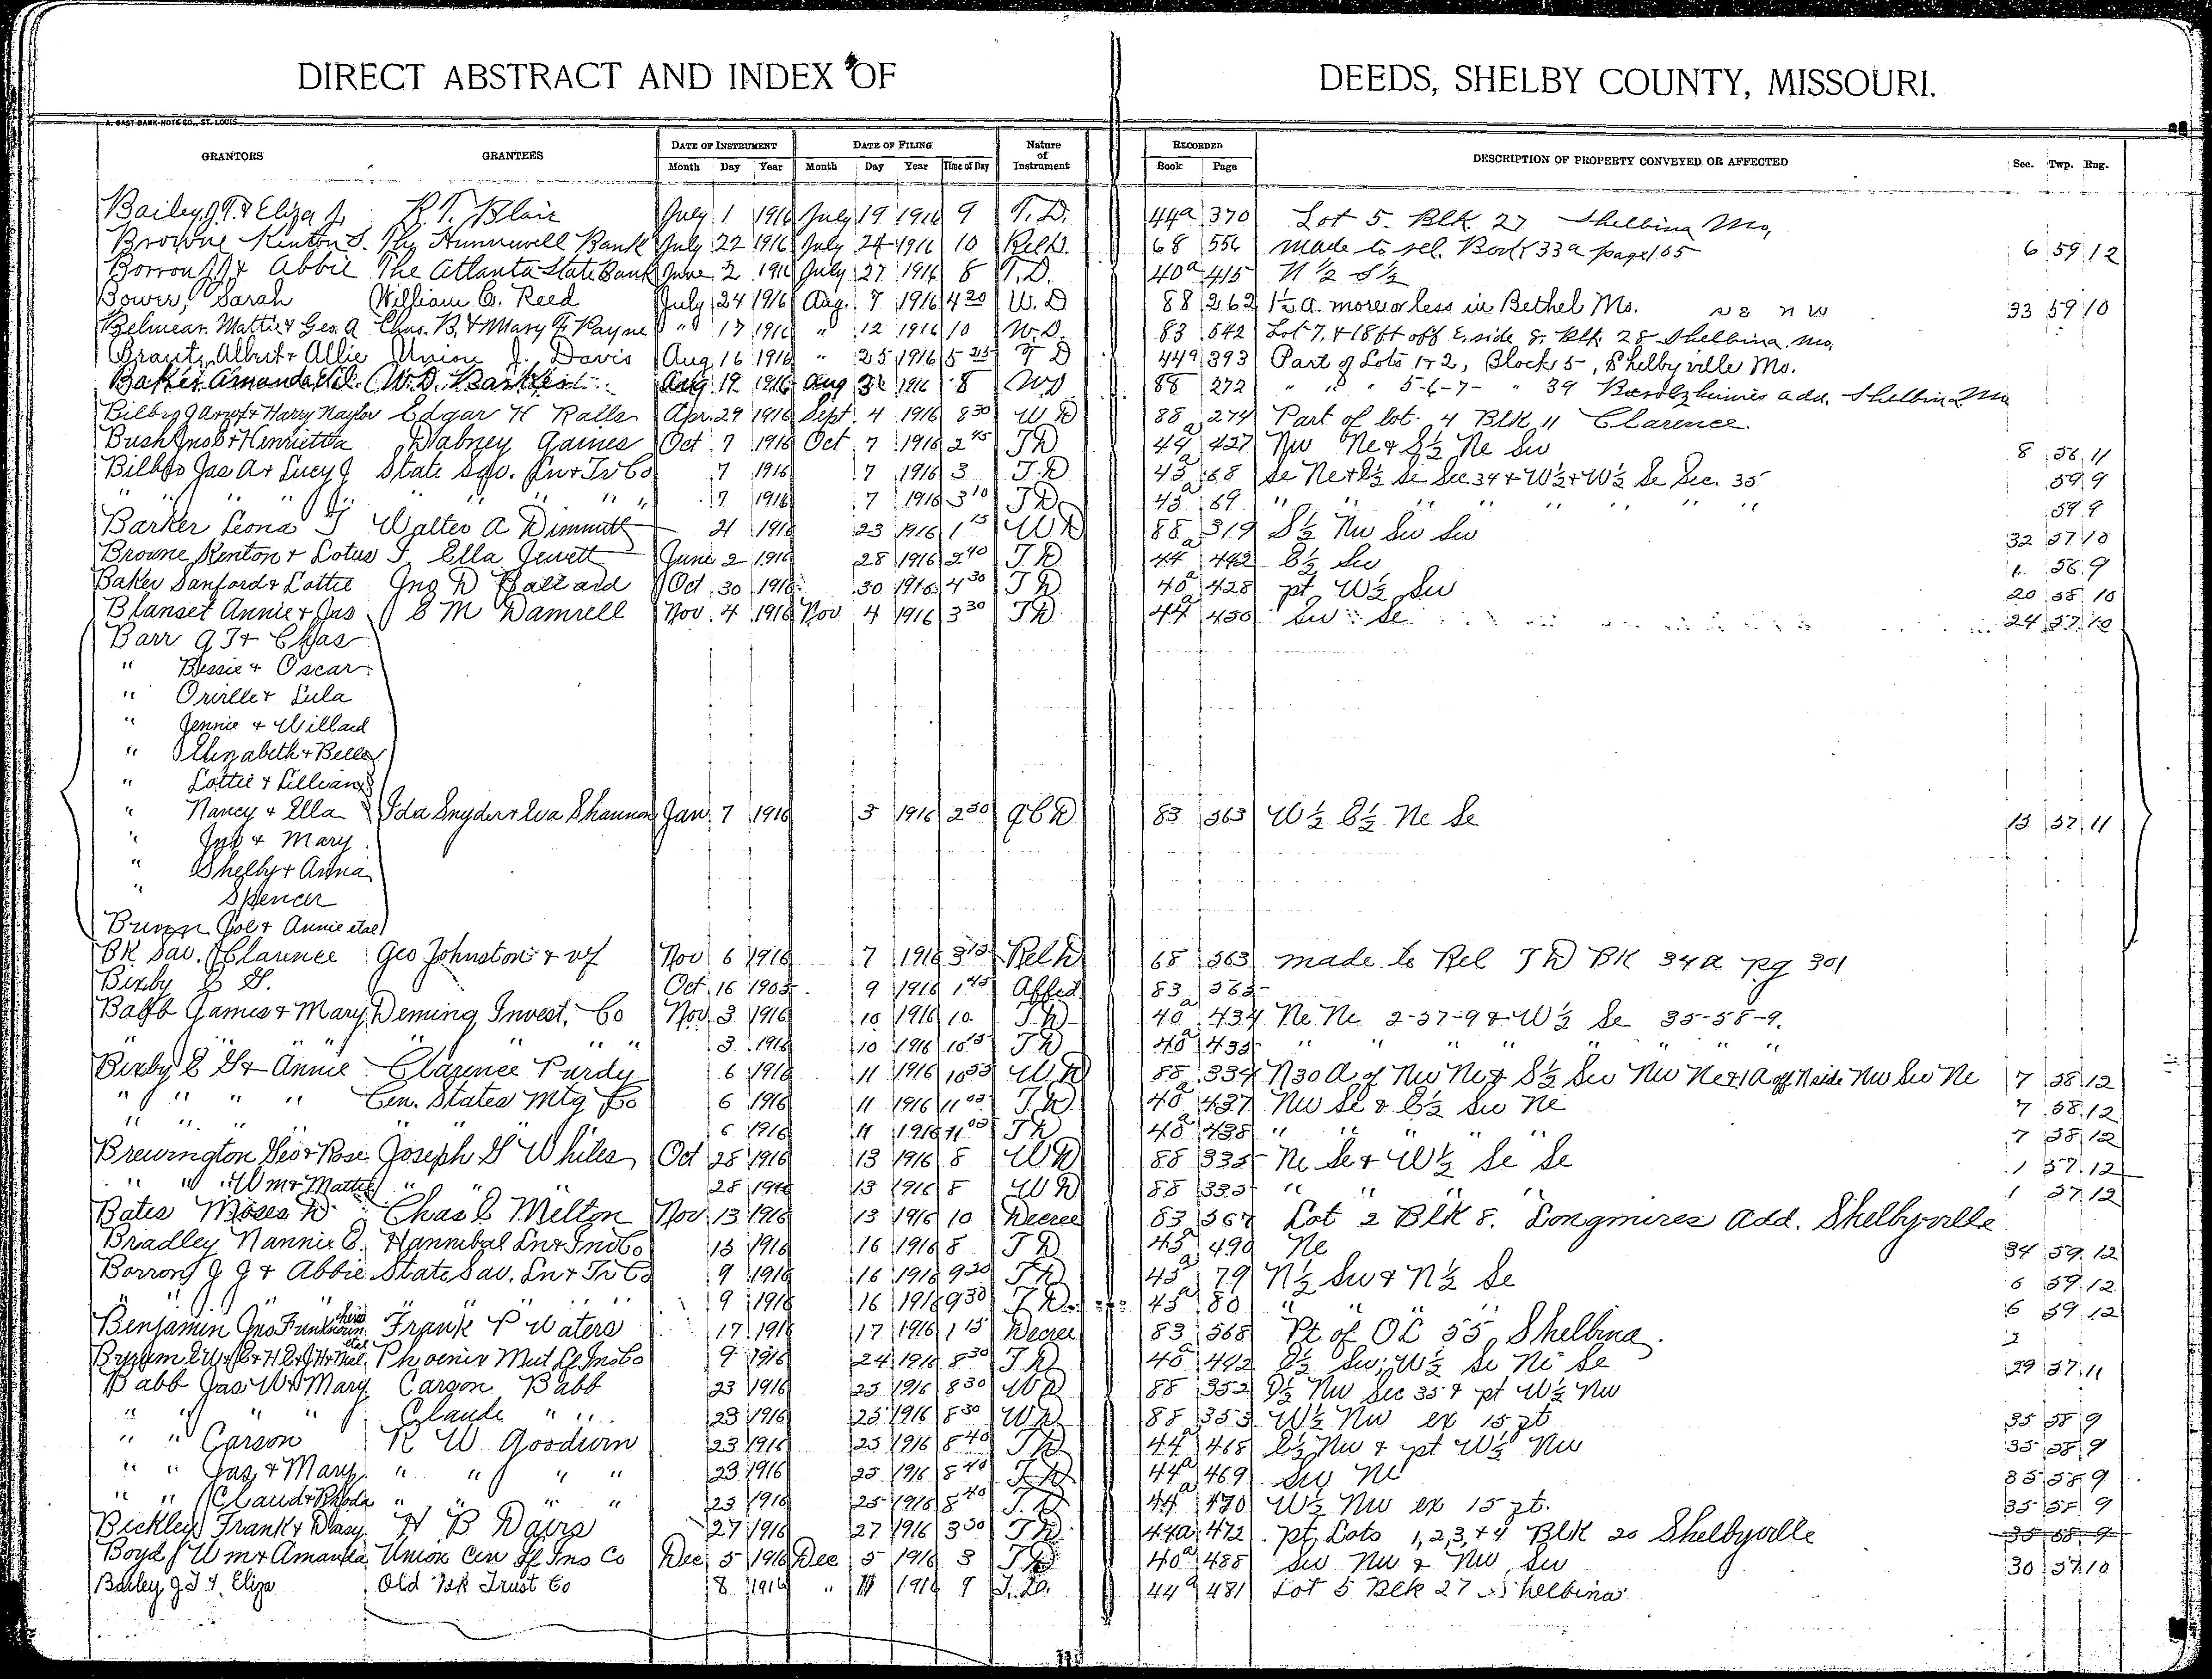 DIRECT ABSTRACT AND INDEX OF DEEDS, SHELBY COUNTY, MISSOURI.
A. GAST BANK NOTE CO., ST. LOUIS
GRANTORS GRANTEES DATE OF INSTRUMENT DATE OF FILING Nature of Instrument RECORDED DESCRIPTION OF PROPERTY CONVEYED OR AFFECTED Sec. Twp. Rng.
Month Day Year Month Day Year Time of Day Book Page
Bailey J. T. & Eliza J. R. T. Blair July 1 1916 July 19 1916 9 T. D. 44a 370 Lot 5. Blk. 27 Shelbina Mo,
Browne Kenton S. The Hunnewell Bank July 22 1916 July 24 1916 10 Rel D. 68 556 made to rel. Book 33a page 105 6 59 12
Borron J J & Abbie The Atlanta State Bank June 2 1916 July 27 1916 8 T. D. 40a 415 N ½ S ½
Bower, Sarah William C. Reed July 24 1916 Aug. 7 1916 4 20 W. D 88 262 1½ a. more or less in Bethel Mo. 33 59 10
Belmear. Mattie & Geo. A Chas. B. & Mary F Payne " 17 1916 " 12 1916 10 W. D. 83 542 Lot 7, & 18 ft off E. side 8, Blk. 28 Shelbina Mo.
Albert & Allie Union J. Davis Aug 16 1916 " 25 1916 5 25 T D 44a 393 Part of Lots 1 & 2, Block 5, Shelbyville Mo.
Baker Amanda, et al. Aug 19 1916 Aug 1916 8 WD 88 272 " " " 5-6-7- " 39 add. Shelbina Mo
Harry Naylor Edgar H Ralls Apr. 29 1916 Sept 4 1916 8 30 W D 88 274 Part of lot 4 Blk 11 Clarence.
Bush Jno B & Henrietta Dabney Gaines Oct. 7 1916 Oct 7 1916 2 45 T D 44a 427 Nw Ne & S ½ Ne Sw 8 56 11
Bilbro Jas A & Lucy J State Sav. Ln & Tr Co 7 1916 7 1916 3 T. D 45a 68 Se Ne & E½ Se Sec. 34 & W½ & W½ Se Sec. 35 59 9
" " " " " " " " 7 1916 7 1916 3 10 T D 45a 69 " " " " " " 59 9
Barker Leona J Walter A Dimmitt 21 1916 23 1916 1 15 W D 88 319 S½ Nw Sw Sw 32 57 10
Browne Kenton & Lotus S Ella Jewett June 2 1916 28 1916 2 40 T. D 44a 442 E½ Sw 56 9
Baker Sanford & Lottie Jno D Ballard Oct 30 1916 30 1916 4 30 T D 40a 428 pt W½ Sw 20 58 10
Blanset Annie & Jas E M Damrell Nov. 4 1916 Nov 4 1916 3 30 T D 44a 450 Sw Se 24 57 10
Barr G T & Chas
" Bessie & Oscar
" Orville & Lula
" Jennie & Willard
" Elizabeth & Belle
" Lottie & Lillian
" Nancy & Ella Ida Snyder & Eva Shannon Jan. 7 1916 3 1916 2 30 Q C D 83 563 W½ E½ Ne Se 13 57 11
" Jno & Mary
" Shelby & Anna
" Spencer
Brown Joe & Annie et al
BK Sav. Clarence Geo Johnston & wf Nov 6 1916 7 1916 3 15 Rel D 68 563 made to Rel T D BK 34a pg 301
Bixby E G. Oct. 16 1905 9 1916 1 45 Affed. 83 565
Babb James & Mary Deming Invest. Co Nov. 3 1916 10 1916 10 T D 40a 434 Ne Ne 2-57-9 & W½ Se 35-58-9.
" " " " " " 3 1916 10 1916 10 15 T. D 40 435 " " " " " "
Bixby E G & Annie Clarence Purdy 6 1916 11 1916 10 55 W D 88 334 N 30 A of Nw Ne & S½ Sw Nw Ne & 1 A off N side Nw Sw Ne 7 58 12
" " " " Cen. States Mtg Co 6 1916 11 1916 11 05 T. D 40a 437 Nw Se & E½ Sw Ne 7 58 12
" " " 6 1916 11 1916 11 05 T D 40a 438 " " " " " 7 58 12
Brewington Geo & Rose Joseph G Whiles Oct 28 1916 13 1916 8 W D 88 335 Ne Se & W½ Se Se 1 57 12
" " Wm & Mattie " " " 28 1916 13 1916 8 W. D 88 335 " " " 1 57 12
Bates Moses D Chas E Melton Nov. 13 1916 13 1916 10 Decree 83 567 Lot 2 Blk 8. Longmires Add. Shelbyville
Bradley Nannie E. Hannibal Ln & Inv Co 15 1916 16 1916 8 T D 45a 490 Ne 34 59 12
Borron J J & Abbie State Sav. Ln & Tr Co 9 1916 16 1916 9 20 T D 45a 79 N½ Sw & N½ Se 6 59 12
" " " " " " 9 1916 16 1916 9 30 T D. 45a 80 " " 6 59 12
Benjamin Jno F unknown heirs Frank P Waters 17 1916 17 1916 1 15 Decree 83 568 Pt of OL 55 Shelbina.
et al Phoenix Mut Lf Ins Co 9 1916 24 1916 8 30 T. D 40a 492 E½ Sw; W½ Se Ne Se 29 57 11
Babb Jas W & Mary Carson Babb 23 1916 25 1916 8 30 W D 88 352 E½ Nw Sec 35 & pt W½ Nw
" " " " Claude " " 23 1916 25 1916 8 30 W D 88 353 W½ Nw ex 15 pt 35 58 9
" " Carson R W Goodwin 23 1916 25 1916 8 40 T D 44a 468 E½ Nw & pt W½ Nw 35 58 9
" " Jas & Mary " " " " 23 1916 25 1916 8 40 T D 44a 469 Sw Ne 35 58 9
" " Claud & Rhoda " " " " 23 1916 25 1916 8 40 T. D 44a 470 W½ Nw ex 15 pt. 35 58 9
Bickley Frank & Daisy H B Davis 27 1916 27 1916 3 30 T D 44a 472 pt Lots 1, 2, 3, & 4 Blk 20 Shelbyville 35 58 9
Boyd Wm & Amanda Union Cen Lf Ins Co Dec 5 1916 Dec 5 1916 3 T D 40a 488 Sw Nw & Nw Sw 30 57 10
Bailey J T & Eliza Old Bk Trust Co 8 1916 " 11 1916 9 T. D. 44a 481 Lot 5 Blk 27 Shelbina